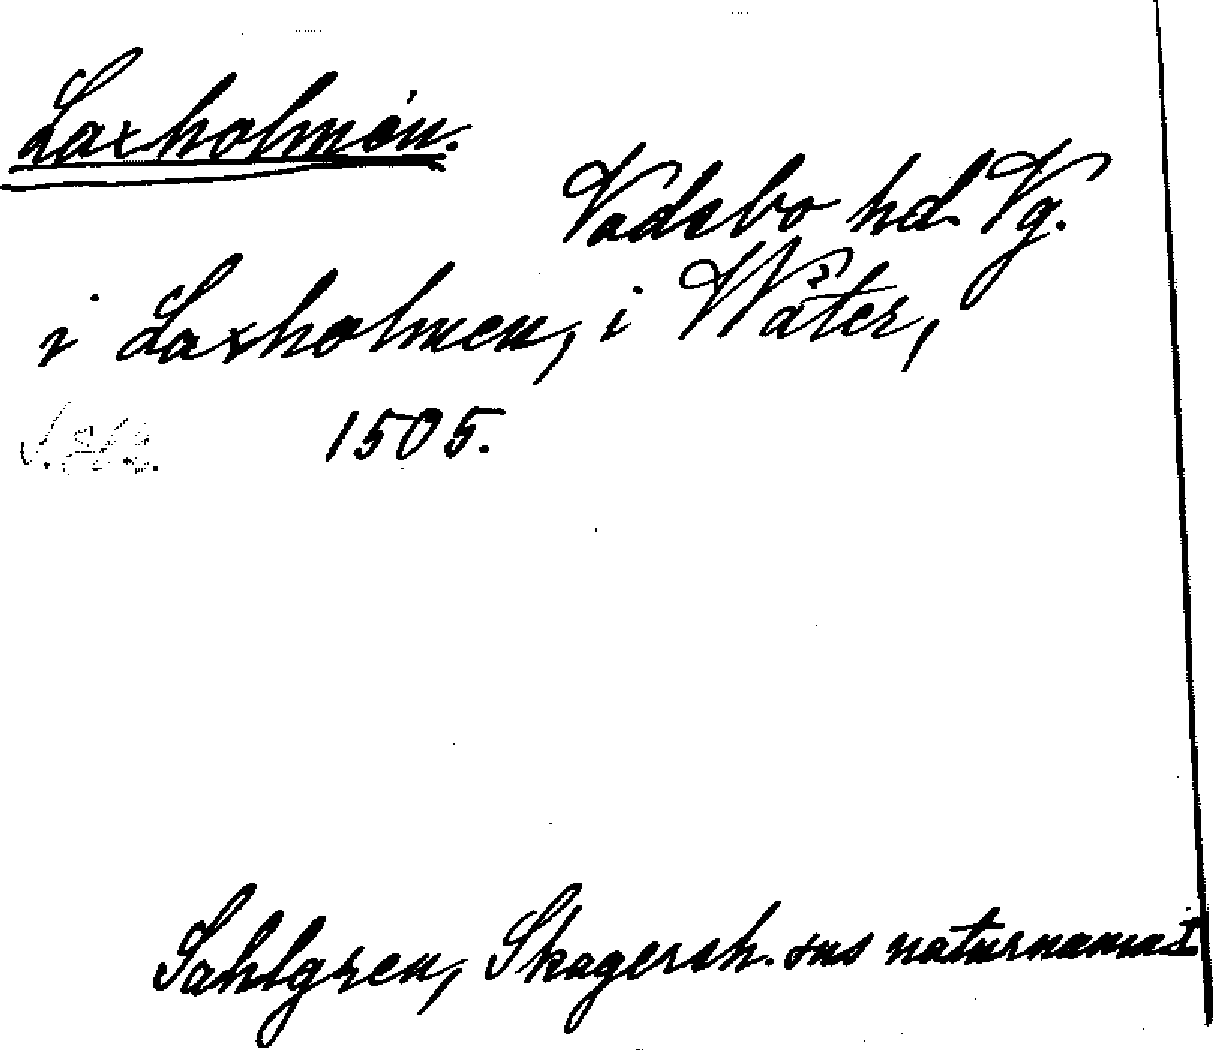 Laxholmen.
Vadsbo hd. Vg.
i Laxholmen, i Wåter,
1505.
Sahlgren, Skagersh. sns naturnamn I